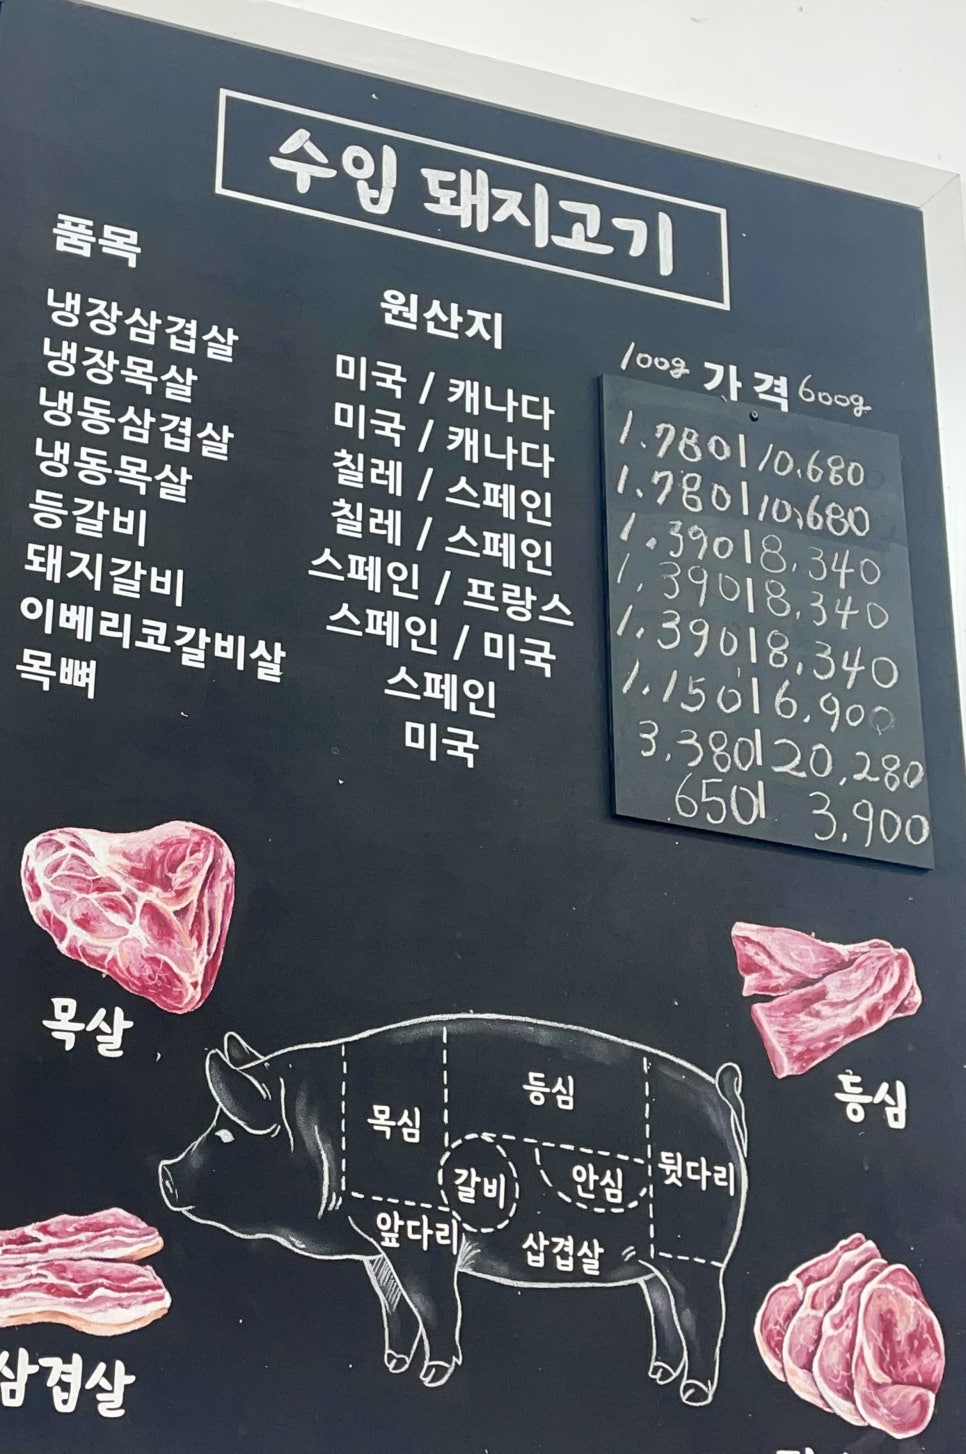 수입 돼지고기
품목 원산지 100g 가격 600g
냉장삼겹살 미국 / 캐나다 1.780 | 10.680
냉장목살 미국 / 캐나다 1.780 | 10.680
냉동삼겹살 칠레 / 스페인 1.390 | 8.340
냉동목살 칠레 / 스페인 1.390 | 8.340
등갈비 스페인 / 프랑스 1.390 | 8.340
돼지갈비 스페인 / 미국 1.150 | 6.900
이베리코갈비살 스페인 3.380 | 20.280
목뼈 미국 650 | 3.900
목살
등심
등심
목심
갈비
안심
뒷다리
앞다리
삼겹살
삼겹살